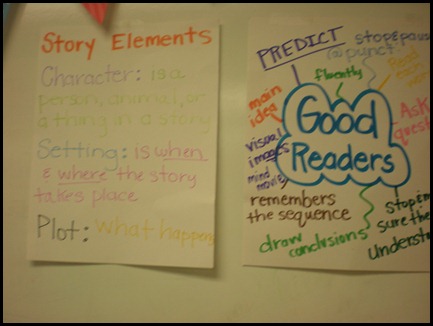 Story Elements
Character: is a
person, animal, or
a thing in a story
Setting: is when
& where the story
takes place
Plot: what happens
PREDICT
stop & pause
@ punct.
fluently
Read
main
idea
Good
Readers
Ask
quest
visual
images
mind
movie
remembers
the sequence
draw
conclusions
stop &
sure the
Underst